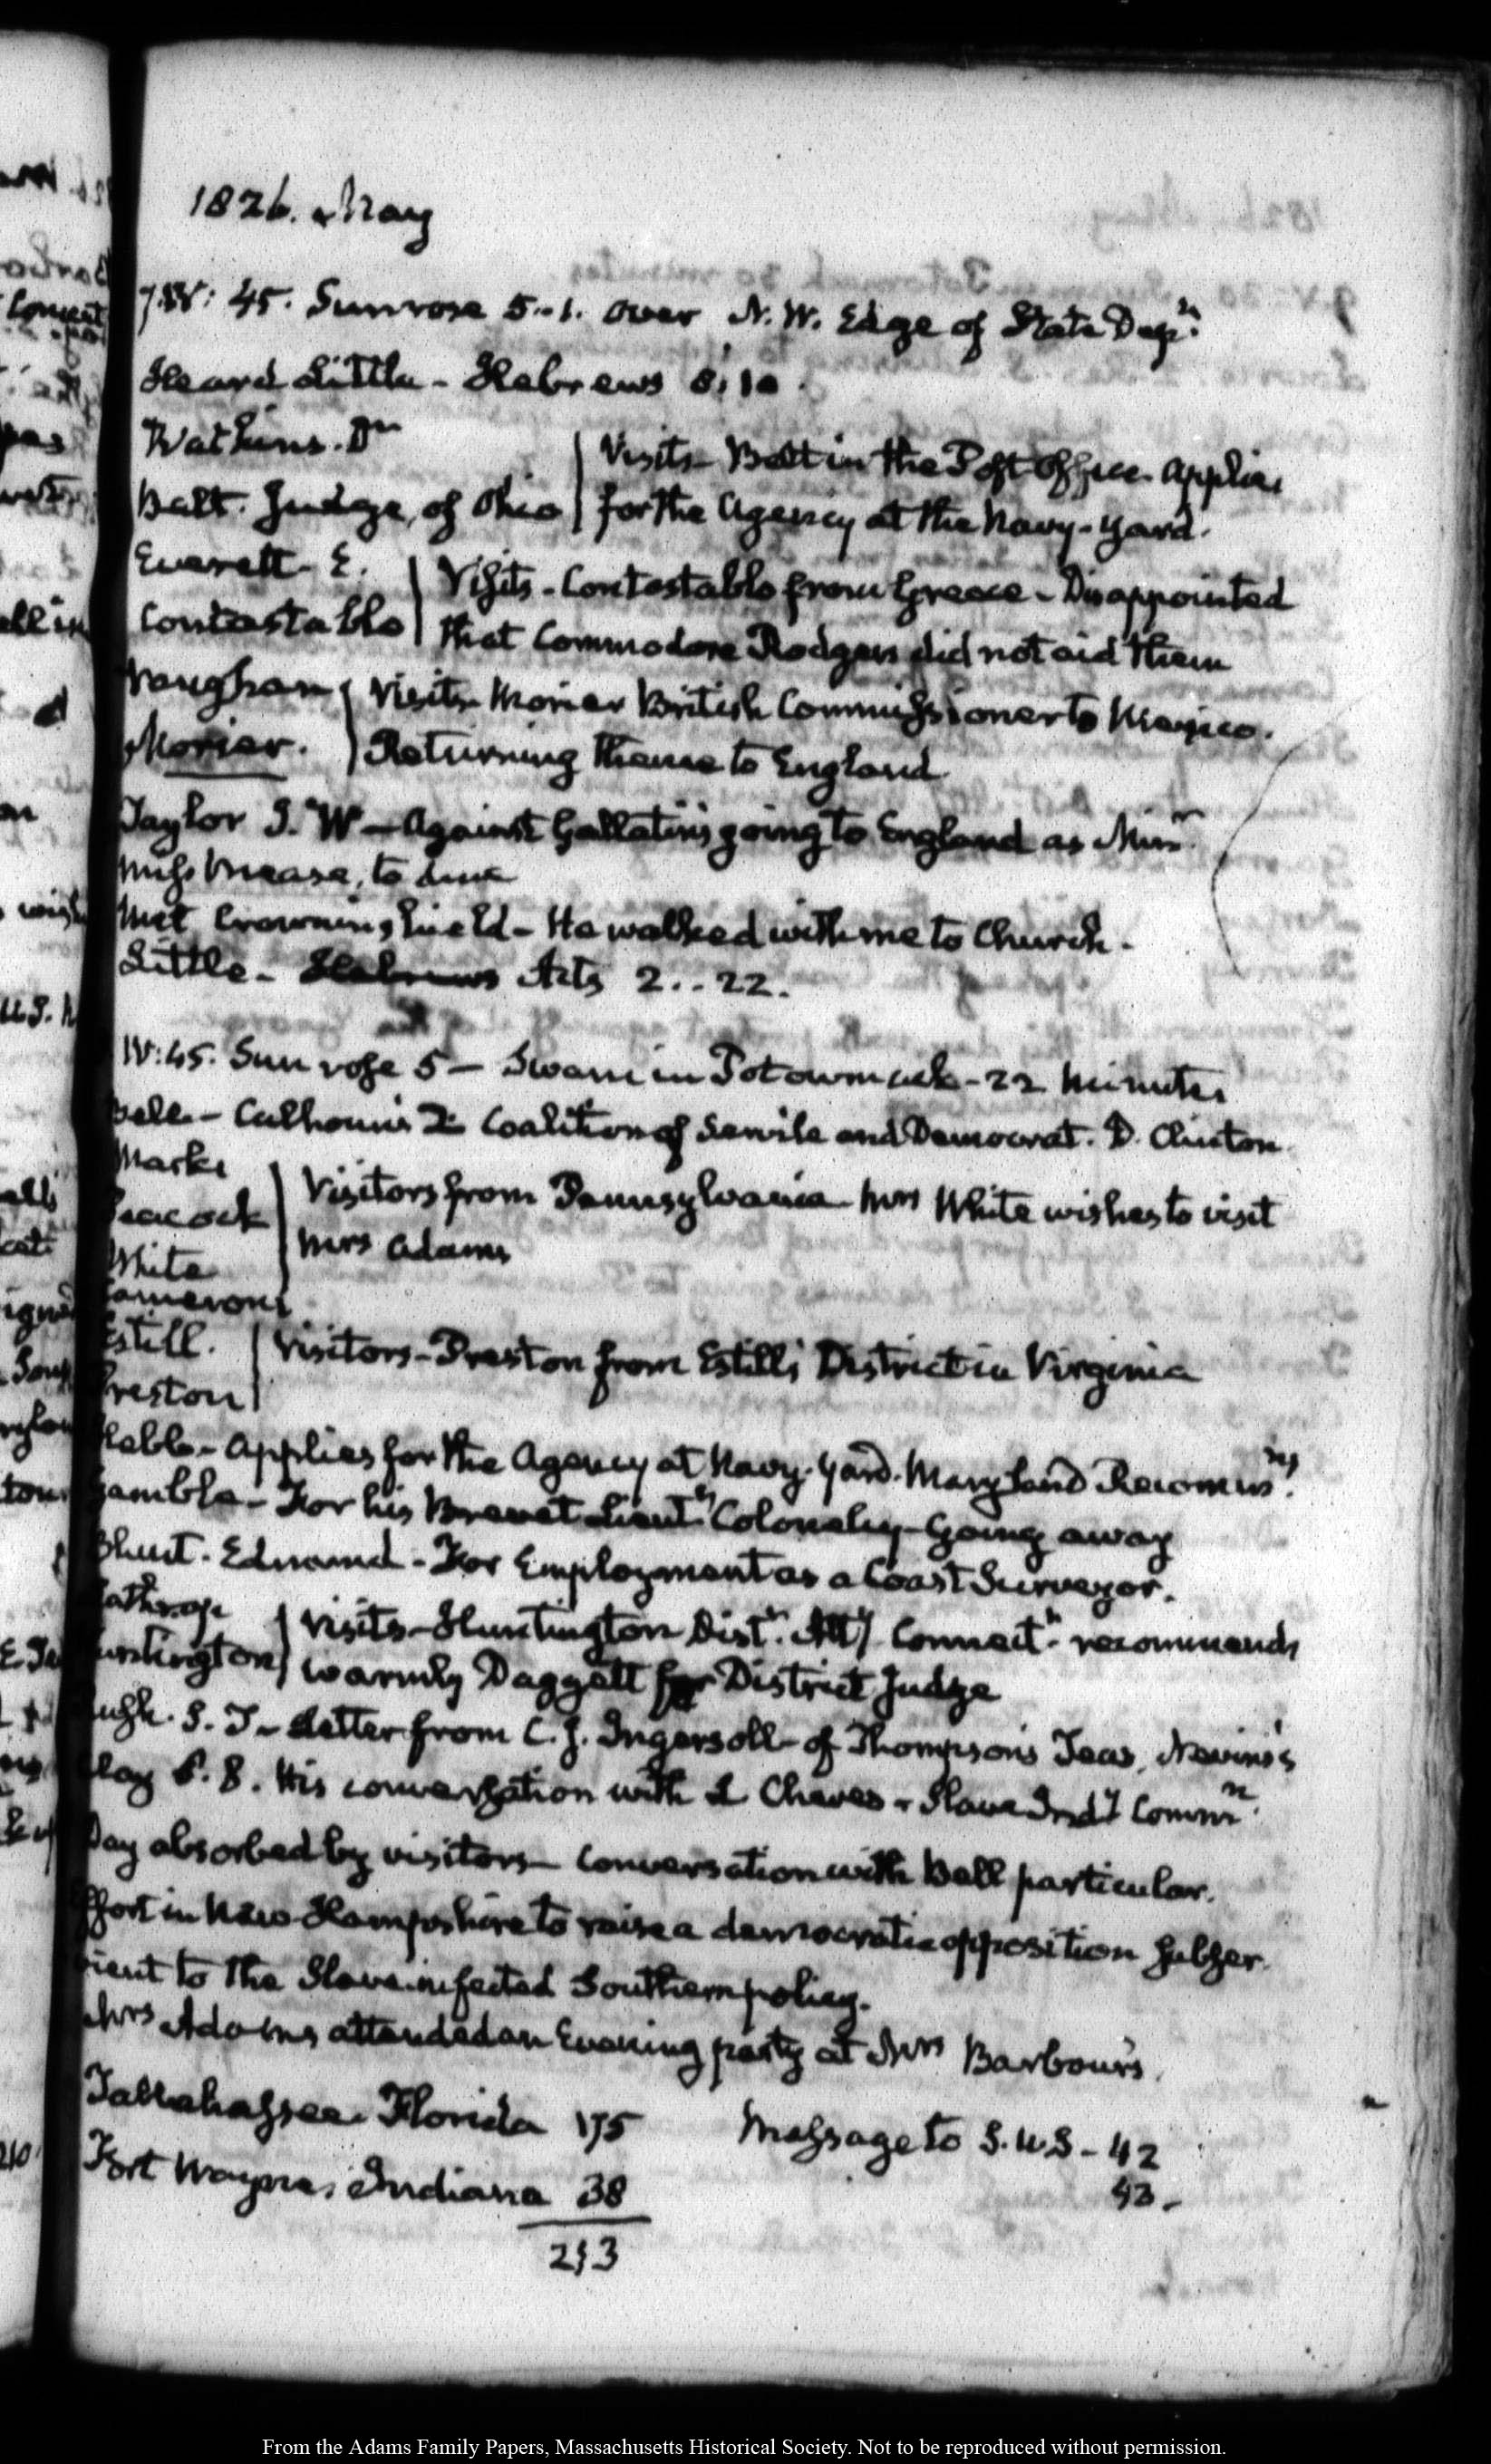 1826. May
7. IV: 45. Sun rose 5..1. over N.W. Edge of State Dept.
Heard Little - Hebrews 8:10.
Watkins. Dr
Batt. Judge, of Ohio
Visits - Batt in the Post Office. applies
for the Agency at the Navy-Yard.
Everett. E.
Contostablo
Visits - Contostablo from Greece - Disappointed
that Commodore Rodgers did not aid them
Vaughan
Morier.
Visits - Morier British Commissioner to Mexico.
Returning thence to England
Taylor J. W - Against Gallatin's going to England as Minr.
Miss Mease, to dine
Met Crowninshield - He walked with me to Church.
Little - Hebrews Acts 2..22.
IV:45. Sun rose 5 - Swam in Potowmack - 22 minutes
Bell - Calhoun's Coalition of Servile and Democrat. D. Clinton
Marks
Peacock
White
Camerons
Visitors from Pennsylvania - Mrs White wishes to visit
Mrs Adams
Estill.
Preston
Visitors - Preston from Estill's District in Virginia
applies for the Agency at Navy-Yard. Maryland
Gamble - For his Brevet Lieutt. Colonelcy - Going away
Blunt. Edmund - For Employment as a Coast Surveyor.
Lathrop
Huntington
Visits - Huntington Distt. Atty. Connectt. recommends
warmly Daggett for District Judge
Letter from C. J. Ingersoll - of Thompson's Teas, Nevins's
Clay His conversation with L Cheves - Slave Indy Commn.
Day absorbed by visitors - Conversation with Bell particular.
Effort in New-Hampshire to raise a democratic opposition subser-
vient to the Slave-infected Southern policy.
Mrs Adams attended an Evening party at Mrs Barbour's.
Tallahassee. Florida 175
Message to S.U.S - 42
Fort Wayne, Indiana 38
43 -
213
From the Adams Family Papers, Massachusetts Historical Society. Not to be reproduced without permission.